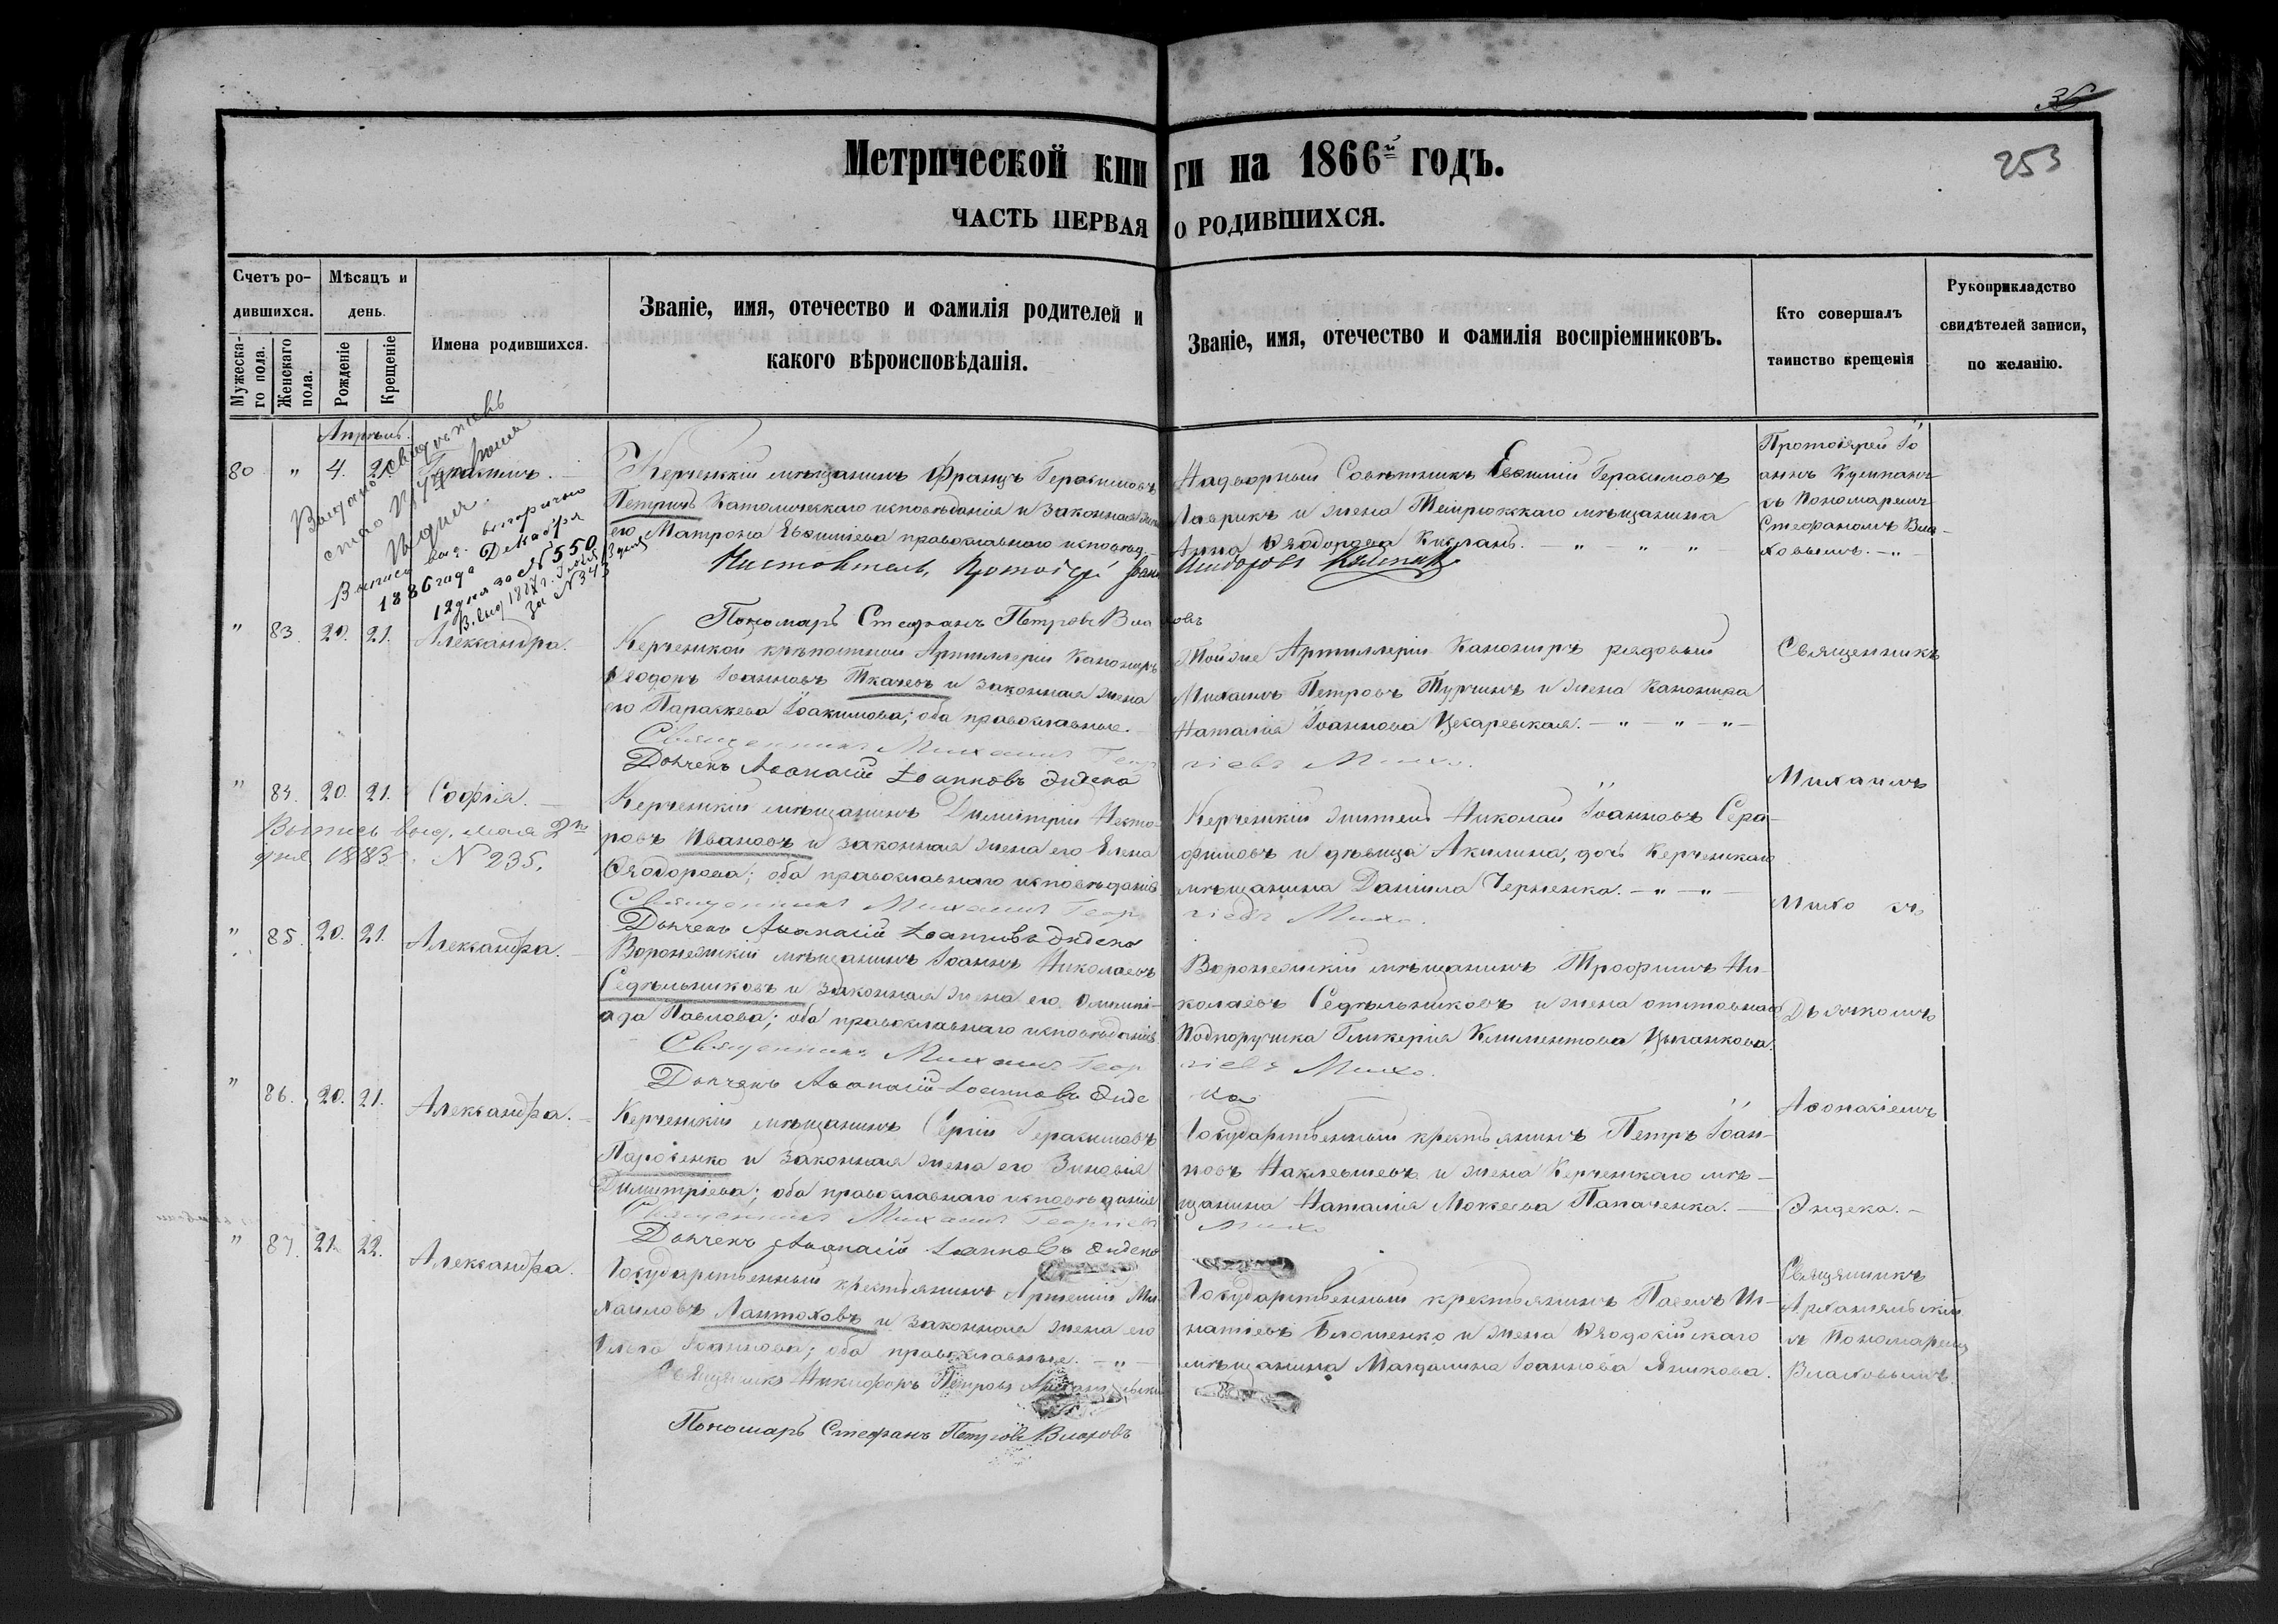 253
Метрической книги на 1866й годъ.
ЧАСТЬ ПЕРВАЯ О РОДИВШИХСЯ.
Счетъ родившихся.
Мужескаго пола.
Женскаго пола.
Мѣсяцъ и день.
Рожденіе
Крещеніе
Имена родившихся.
Званіе, имя, отечество и фамилія родителей и
какого вѣроисповѣданія.
Званіе, имя, отечество и фамилія воспріемниковъ.
Кто совершалъ
таинство крещенія
Рукоприкладство
свидѣтелей записи,
по желанію.
Апрѣль.
80 " 4.
Выпись выд. вторично
1886 года Декабря
12 дня за № 550
за № 343
Керченскій мѣщанинъ Францъ Герасимовъ
Петричъ Католическаго исповѣданія и законная жена
его Матрона Евѳиміева православнаго исповѣд.
Надворный Совѣтникъ Евѳимій Герасимовъ
Лаврикъ и жена Темрюкскаго мѣщанина
Анна Ѳеодорова
Протоіерей Іо
аннъ
съ Пономаремъ
Стефаномъ Вла-
ховымъ. "
Пономарь Стефанъ Петровъ Влаховъ
" 83. 20. 21. Александра.
Керченской крѣпостной Артиллеріи Канониръ
Ѳеодоръ Іоанновъ Ткачевъ и законная жена
его Параскева Іоакимова; оба православные.
Священникъ Михаилъ Георгіевъ Михо.
Дьячекъ Аѳанасій Іоанновъ Эндека
Той же Артиллеріи Канониръ рядовый
Михаилъ Петровъ Турчинъ и жена Канонира
Наталія Іоаннова Цесаревская. " " "
Священникъ
" 84. 20. 21. Софія.
Выпись выд. мая 2го
дня 1883 г. № 235.
Керченскій мѣщанинъ Димитрій Несто-
ровъ Ивановъ и законная жена его Елена
Ѳеодорова; оба православнаго исповѣданія
Священникъ Михаилъ Георгіевъ Михо.
Дьячекъ Аѳанасій Іоанновъ Эндека
Керченскій житель Николай Іоанновъ Сера-
фимовъ и дѣвица Акилина, дочь Керченскаго
мѣщанина Даніила Черненка. " "
Михаилъ
Михо съ
" 85. 20. 21. Александра.
Воронежскій мѣщанинъ Іоаннъ Николаевъ
Седѣльниковъ и законная жена его Олимпі-
ада Павлова; оба православнаго исповѣданія
Священникъ Михаилъ Георгіевъ Михо.
Дьячекъ Аѳанасій Іоанновъ Эндека
Воронежскій мѣщанинъ Трофимъ Ни-
колаевъ Седѣльниковъ и жена отставнаго
Подпоручика Гликерія Климентова Цыканкова.
Дьячкомъ
" 86. 20. 21. Александра.
Керченскій мѣщанинъ Сергій Герасимовъ
и законная жена его Зиновія
Димитріева; оба православнаго исповѣданія
Священникъ Михаилъ Георгіевъ Михо
Дьячекъ Аѳанасій Іоанновъ Эндека
Государственный крестьянинъ Петръ Іоан-
новъ и жена Керченскаго мѣ-
щанина Наталія Мокеева Папаченка.
Аѳанасіемъ
Эндека.
" 87. 21. 22. Александра.
Государственный крестьянинъ Артемій Ми-
хаиловъ Лантоховъ и законная жена его
Ольга Іоаннова; оба православные. "
Священникъ Никифоръ Петровъ Архангельскій
Пономарь Стефанъ Петровъ Влаховъ
Государственный крестьянинъ Павелъ Иг-
натіевъ и жена Ѳеодосійскаго
мѣщанина Магдалина Іоаннова Яшкова.
Священникъ
Архангельскій
съ Пономаремъ
Влаховымъ.